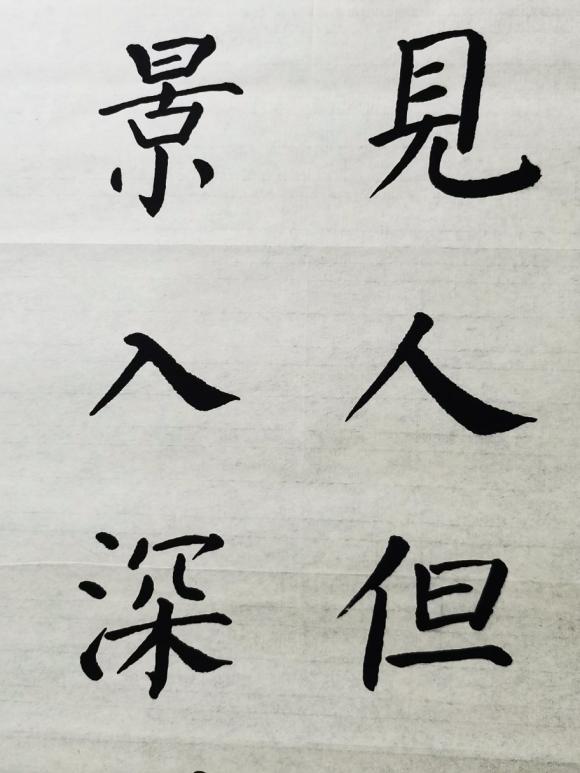 見人但
景入深